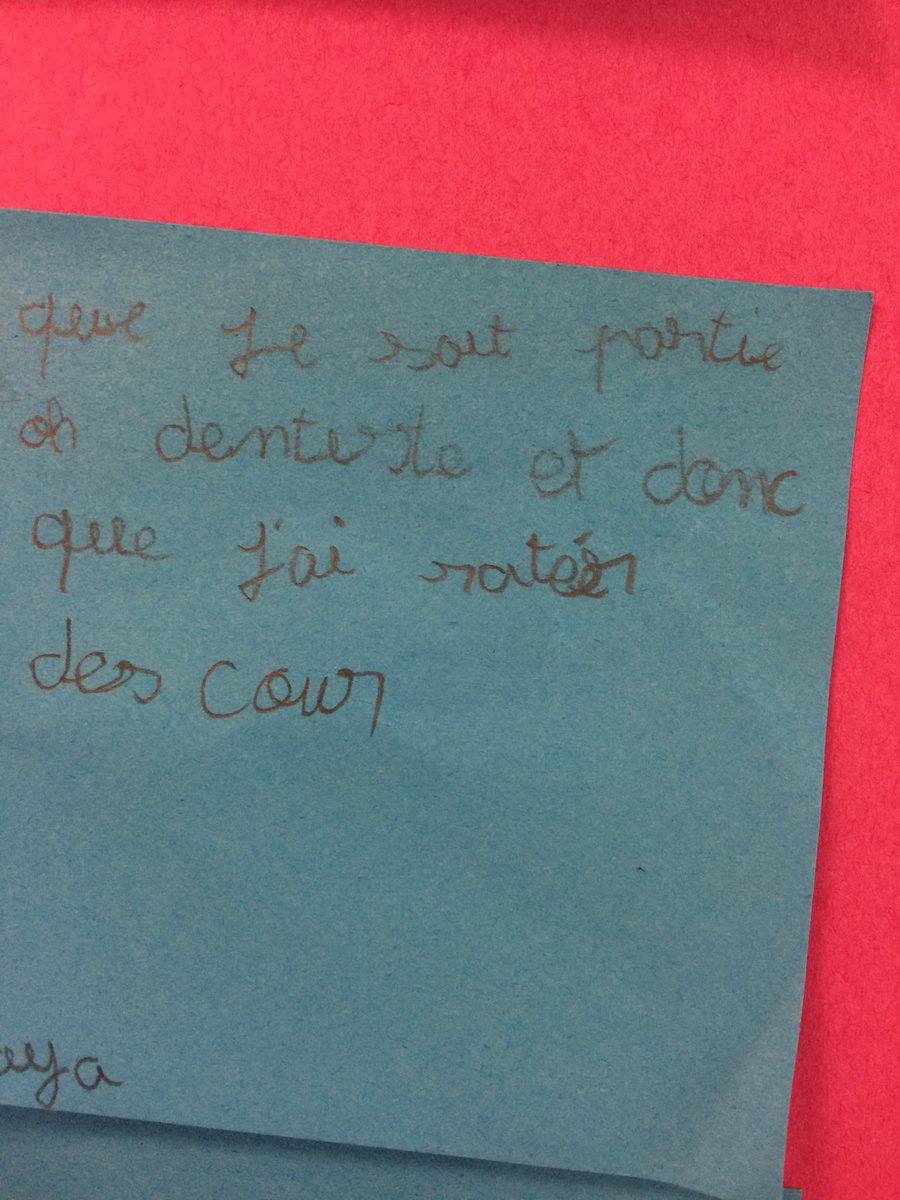 que Je soit partie
oh dentiste et donc
que J'ai ratéer
des cour
aya